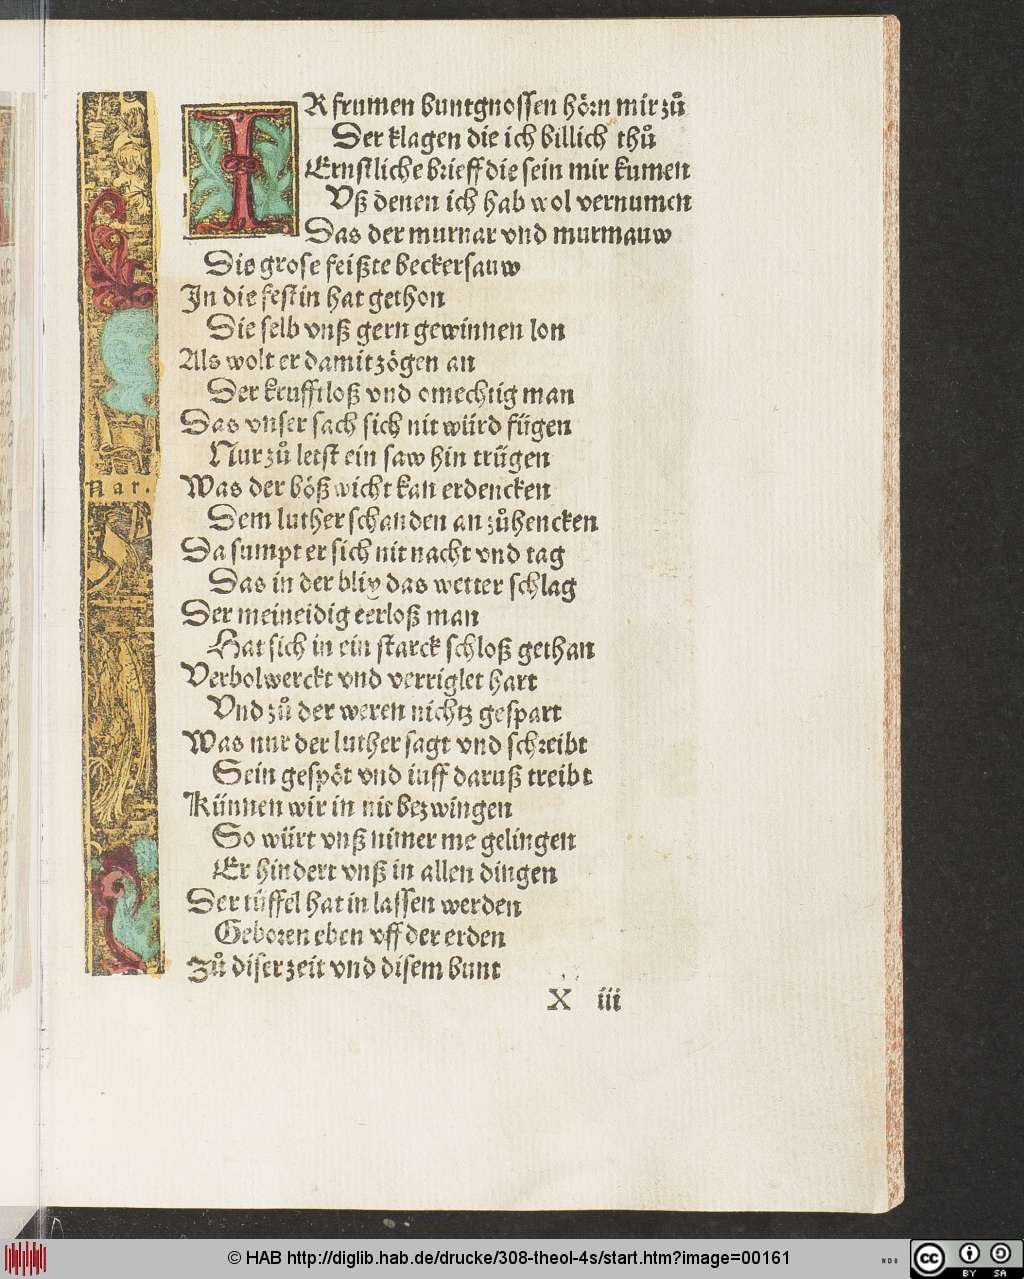 IR frumen buntgnossen hörn mir zů
Der klagen die ich billich thů
Ernstliche brieff die sein mir kumen
Vß denen ich hab wol vernumen
Das der murnar vnd murmauw
Die grose feißte beckersauw
In die festin hat gethon
Die selb vnß gern gewinnen lon
Als wolt er damit zögen an
Der krufftloß vnd omechtig man
Das vnser sach sich nit würd fügen
Nur zů letst ein saw hin trügen
Was der bößwicht kan erdencken
Dem luther schanden an zůhencken
Da sumpt er sich nit nacht vnd tag
Das in der blix das wetter schlag
Der meineidig eerloß man
Hat sich in ein starck schloß gethan
Verbolwerckt vnd verriglet hart
Vnd zů der weren nichtz gespart
Was nur der luther sagt vnd schreibt
Sein gespöt vnd iuff daruß treibt
Künnen wir in nit bezwingen
So würt vnß nimer me gelingen
Er hindert vnß in allen dingen
Der tüffel hat in lassen werden
Geboren eben vff der erden
Zů diser zeit vnd disem bunt
X iii
Nar.
© HAB http://diglib.hab.de/drucke/308-theol-4s/start.htm?image=00161
WDB
cc BY SA